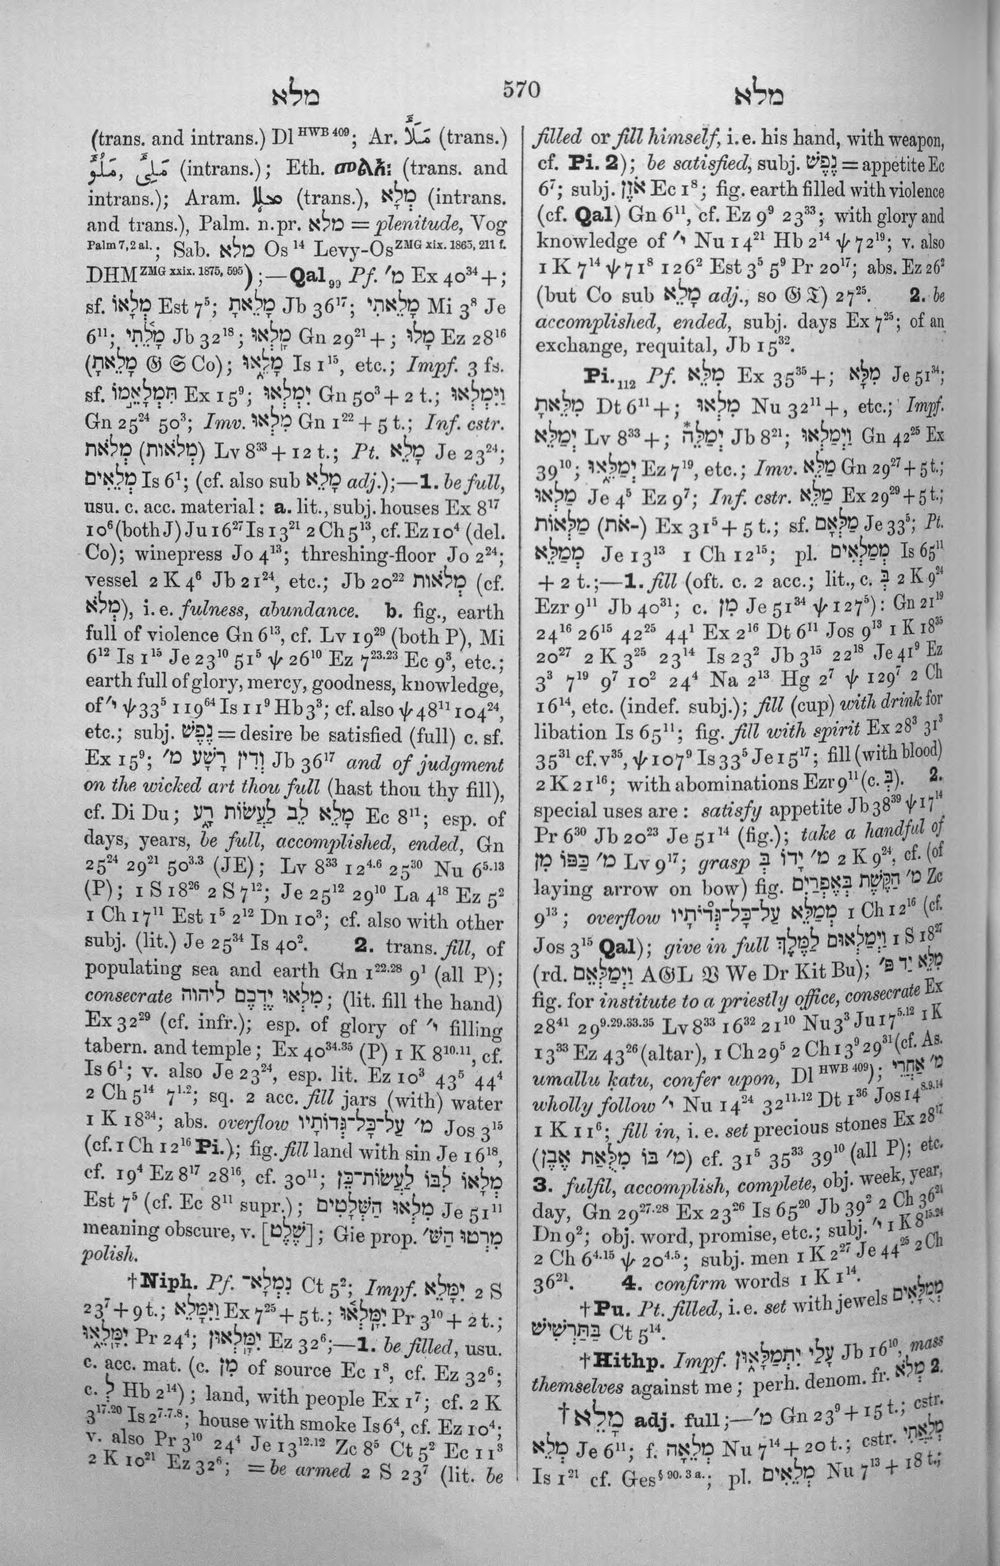 מלא 570 מלא
(trans. and intrans.) Dl HWB 409; Ar. مَلَأَ (trans.)
(intrans.); Eth. መልአ: (trans. and
intrans.); Aram. ܡܠܐ (trans.), מְלָא (intrans.
and trans.), Palm. n.pr. מלא = plenitude, Vog
Palm 7, 2 al.; Sab. מלא Os 14 Levy-Os ZMG xix. 1865, 211 f.
DHM ZMG xxix. 1875, 595);—Qal 99 Pf. מ׳ Ex 40³⁴ +;
sf. מְלָאוֹ Est 7⁵; מָלֵאתָ Jb 36¹⁷; מָלֵאתִי Mi 3⁸ Je
6¹¹; מָלֵתִי Jb 32¹⁸; מָלְאוּ Gn 29²¹ +; מָלוּ Ez 28¹⁶
(מָלֵאתָ 𝔊 𝔖 Co); מָלֵאוּ Is 1¹⁵, etc.; Impf. 3 fs.
sf. תִּמְלָאֵמוֹ Ex 15⁹; יִמְלְאוּ Gn 50³ + 2 t.; וַיִּמְלְאוּ
Gn 25²⁴ 50³; Imv. מִלְאוּ Gn 1²² + 5 t.; Inf. cstr.
מְלֹאת (מְלֹאות) Lv 8³³ + 12 t.; Pt. מָלֵא Je 23²⁴;
מְלֵאִים Is 6¹; (cf. also sub מָלֵא adj.);—1. be full,
usu. c. acc. material: a. lit., subj. houses Ex 8¹⁷
10⁶ (both J) Ju 16²⁷ Is 13²¹ 2 Ch 5¹³, cf. Ez 10⁴ (del.
Co); winepress Jo 4¹³; threshing-floor Jo 2²⁴;
vessel 2 K 4⁶ Jb 21²⁴, etc.; Jb 20²² מְלֹאות (cf.
מְלֹא), i.e. fulness, abundance. b. fig., earth
full of violence Gn 6¹³, cf. Lv 19²⁹ (both P), Mi
6¹² Is 1¹⁵ Je 23¹⁰ 51⁵ ψ 26¹⁰ Ez 7²³·²³ Ec 9³, etc.;
earth full of glory, mercy, goodness, knowledge,
of י׳ ψ 33⁵ 119⁶⁴ Is 11⁹ Hb 3³; cf. also ψ 48¹¹ 104²⁴,
etc.; subj. נֶפֶשׁ = desire be satisfied (full) c. sf.
Ex 15⁹; וְדִין רָשָׁע מ׳ Jb 36¹⁷ and of judgment
on the wicked art thou full (hast thou thy fill),
cf. Di Du; מָלֵא לֵב לַעֲשׂוֹת רָע Ec 8¹¹; esp. of
days, years, be full, accomplished, ended, Gn
25²⁴ 29²¹ 50³·³ (JE); Lv 8³³ 12⁴·⁶ 25³⁰ Nu 6⁵·¹³
(P); 1 S 18²⁶ 2 S 7¹²; Je 25¹² 29¹⁰ La 4¹⁸ Ez 5²
1 Ch 17¹¹ Est 1⁵ 2¹² Dn 10³; cf. also with other
subj. (lit.) Je 25³⁴ Is 40². 2. trans. fill, of
populating sea and earth Gn 1²²·²⁸ 9¹ (all P);
consecrate מִלְאוּ יֶדְכֶם ליהוה; (lit. fill the hand)
Ex 32²⁹ (cf. infr.); esp. of glory of י׳ filling
tabern. and temple; Ex 40³⁴·³⁵ (P) 1 K 8¹⁰·¹¹, cf.
Is 6¹; v. also Je 23²⁴, esp. lit. Ez 10³ 43⁵ 44⁴
2 Ch 5¹⁴ 7¹·²; sq. 2 acc. fill jars (with) water
1 K 18³⁴; abs. overflow מ׳ עַל־כָּל־גְּדוֹתָיו Jos 3¹⁵
(cf. 1 Ch 12¹⁶ Pi.); fig. fill land with sin Je 16¹⁸,
cf. 19⁴ Ez 8¹⁷ 28¹⁶, cf. 30¹¹; מְלָאוֹ לִבּוֹ לַעֲשׂוֹת־כֵּן
Est 7⁵ (cf. Ec 8¹¹ supr.); מִלְאוּ הַשְּׁלָטִים Je 51¹¹
meaning obscure, v. [שֶׁלֶט]; Gie prop. מִרְטוּ הַשּׁ׳
polish.
†Niph. Pf. נִמְלָא־ Ct 5²; Impf. יִמָּלֵא 2 S
23⁷ + 9 t.; וַיִּמָּלֵא Ex 7²⁵ + 5 t.; יִמָּלְאוּ Pr 3¹⁰ + 2 t.;
יִמָּלְאוּ Pr 24⁴; יִמָּלְאוּן Ez 32⁶;—1. be filled, usu.
c. acc. mat. (c. מִן of source Ec 1⁸, cf. Ez 32⁶;
c. לְ Hb 2¹⁴); land, with people Ex 1⁷; cf. 2 K
3¹⁷·²⁰ Is 2⁷·⁷·⁸; house with smoke Is 6⁴, cf. Ez 10⁴;
v. also Pr 3¹⁰ 24⁴ Je 13¹²·¹² Zc 8⁵ Ct 5² Ec 11³
2 K 10²¹ Ez 32⁶; = be armed 2 S 23⁷ (lit. be
filled or fill himself, i.e. his hand, with weapon,
cf. Pi. 2); be satisfied, subj. נֶפֶשׁ = appetite Ec
6⁷; subj. אֹזֶן Ec 1⁸; fig. earth filled with violence
(cf. Qal) Gn 6¹¹, cf. Ez 9⁹ 23³³; with glory and
knowledge of י׳ Nu 14²¹ Hb 2¹⁴ ψ 72¹⁹; v. also
1 K 7¹⁴ ψ 71⁸ 126² Est 3⁵ 5⁹ Pr 20¹⁷; abs. Ez 26²
(but Co sub מָלֵא adj., so 𝔊 𝔗) 27²⁵. 2. be
accomplished, ended, subj. days Ex 7²⁵; of an
exchange, requital, Jb 15³².
Pi. 112 Pf. מִלֵּא Ex 35³⁵ +; מִלָּא Je 51³⁴;
מִלֵּאתָ Dt 6¹¹ +; מִלְאוּ Nu 32¹¹ +, etc.; Impf.
יְמַלֵּא Lv 8³³ +; יְמַלֵּה Jb 8²¹; וַיְמַלְאוּ Gn 42²⁵ Ex
39¹⁰; יְמַלֵּאוּ Ez 7¹⁹, etc.; Imv. מַלֵּא Gn 29²⁷ + 5 t.;
מַלְאוּ Je 4⁵ Ez 9⁷; Inf. cstr. מַלֵּא Ex 29²⁹ + 5 t.;
מַלֹּאות (־את) Ex 31⁵ + 5 t.; sf. מַלְאָם Je 33⁵; Pt.
מְמַלֵּא Je 13¹³ 1 Ch 12¹⁵; pl. מְמַלְאִים Is 65¹¹
+ 2 t.;—1. fill (oft. c. 2 acc.; lit., c. בְּ 2 K 9²⁴
Ezr 9¹¹ Jb 40³¹; c. מִן Je 51³⁴ ψ 127⁵): Gn 21¹⁹
24¹⁶ 26¹⁵ 42²⁵ 44¹ Ex 2¹⁶ Dt 6¹¹ Jos 9¹³ 1 K 18³⁵
20²⁷ 2 K 3²⁵ 23¹⁴ Is 23² Jb 3¹⁵ 22¹⁸ Je 41⁹ Ez
3³ 7¹⁹ 9⁷ 10² 24⁴ Na 2¹³ Hg 2⁷ ψ 129⁷ 2 Ch
16¹⁴, etc. (indef. subj.); fill (cup) with drink for
libation Is 65¹¹; fig. fill with spirit Ex 28³ 31³
35³¹ cf. v³⁵, ψ 107⁹ Is 33⁵ Je 15¹⁷; fill (with blood)
2 K 21¹⁶; with abominations Ezr 9¹¹ (c. בְּ). 2.
special uses are: satisfy appetite Jb 38³⁹ ψ 17¹⁴
Pr 6³⁰ Jb 20²³ Je 51¹⁴ (fig.); take a handful of
מ׳ כַּפּוֹ מִן Lv 9¹⁷; grasp מ׳ יָדוֹ בְּ 2 K 9²⁴, cf. (of
laying arrow on bow) fig. מ׳ הַקֶּשֶׁת בְּאֶפְרַיִם Zc
9¹³; overflow מְמַלֵּא עַל־כָּל־גְּדֹוֹתָיו 1 Ch 12¹⁶ (cf.
Jos 3¹⁵ Qal); give in full וַיְמַלְאוּם לַמֶּלֶךְ 1 S 18²⁷
(rd. וַיְמַלְאֵם A𝔊L 𝔙 We Dr Kit Bu); מִלֵּא יַד פ׳
fig. for institute to a priestly office, consecrate Ex
28⁴¹ 29⁹·²⁹·³³·³⁵ Lv 8³³ 16³² 21¹⁰ Nu 3³ Ju 17⁵·¹² 1 K
13³³ Ez 43²⁶ (altar), 1 Ch 29⁵ 2 Ch 13⁹ 29³¹ (cf. As.
umallu katu, confer upon, Dl HWB 409); מ׳ אַחֲרֵי
wholly follow י׳ Nu 14²⁴ 32¹¹·¹² Dt 1³⁶ Jos 14⁸·⁹·¹⁴
1 K 11⁶; fill in, i.e. set precious stones Ex 28¹⁷
(מ׳ בוֹ מִלֻּאַת אֶבֶן) cf. 31⁵ 35³³ 39¹⁰ (all P); etc.
3. fulfil, accomplish, complete, obj. week, year,
day, Gn 29²⁷·²⁸ Ex 23²⁶ Is 65²⁰ Jb 39² 2 Ch 36²¹
Dn 9²; obj. word, promise, etc.; subj. י׳ 1 K 8¹⁵·²⁴
2 Ch 6⁴·¹⁵ ψ 20⁴·⁵; subj. men 1 K 2²⁷ Je 44²⁵ 2 Ch
36²¹. 4. confirm words 1 K 1¹⁴.
†Pu. Pt. filled, i.e. set with jewels מְמֻלָּאִים
בַּתַּרְשִׁישׁ Ct 5¹⁴.
†Hithp. Impf. עָלַי יִתְמַלָּאוּן Jb 16¹⁰, mass
themselves against me; perh. denom. fr. מְלֹא 2.
†מָלֵא adj. full;—מ׳ Gn 23⁹ + 15 t.; cstr.
מְלֵא Je 6¹¹; f. מְלֵאָה Nu 7¹⁴ + 20 t.; cstr. מְלֵאֲתִי
Is 1²¹ cf. Ges § 90. 3 a.; pl. מְלֵאִים Nu 7¹³ + 18 t.;